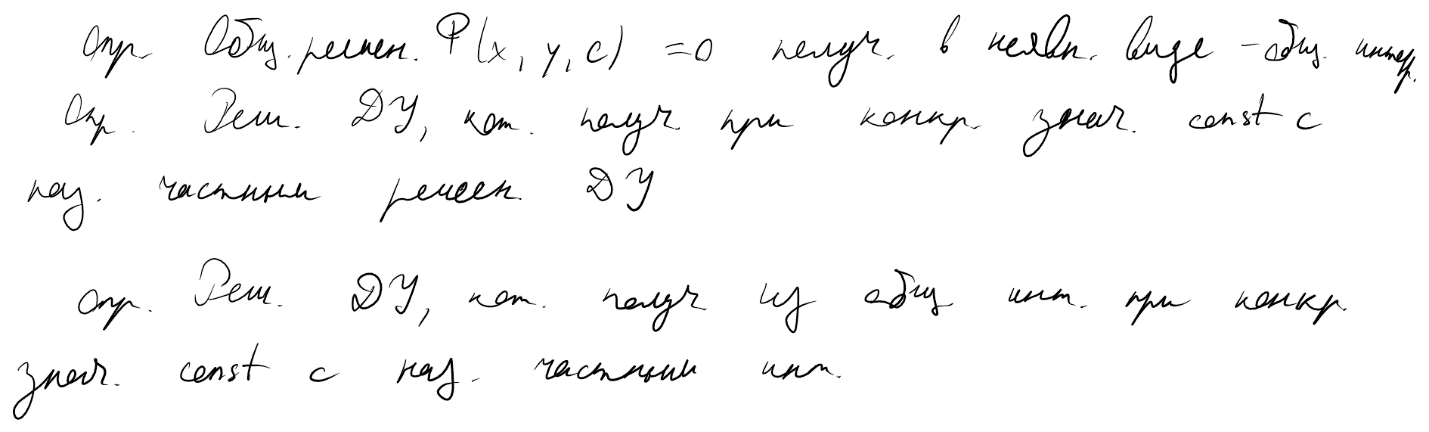 опр. Общ. решен. Φ(x, y, c) = 0 получ. в неявн. виде – общ. интегр.
Опр. Реш. ДУ, кот. получ при конкр. знач. const c
наз. частным решен. ДУ
опр. Реш. ДУ, кот. получ из общ инт. при конкр.
знач. const c наз. частным инт.